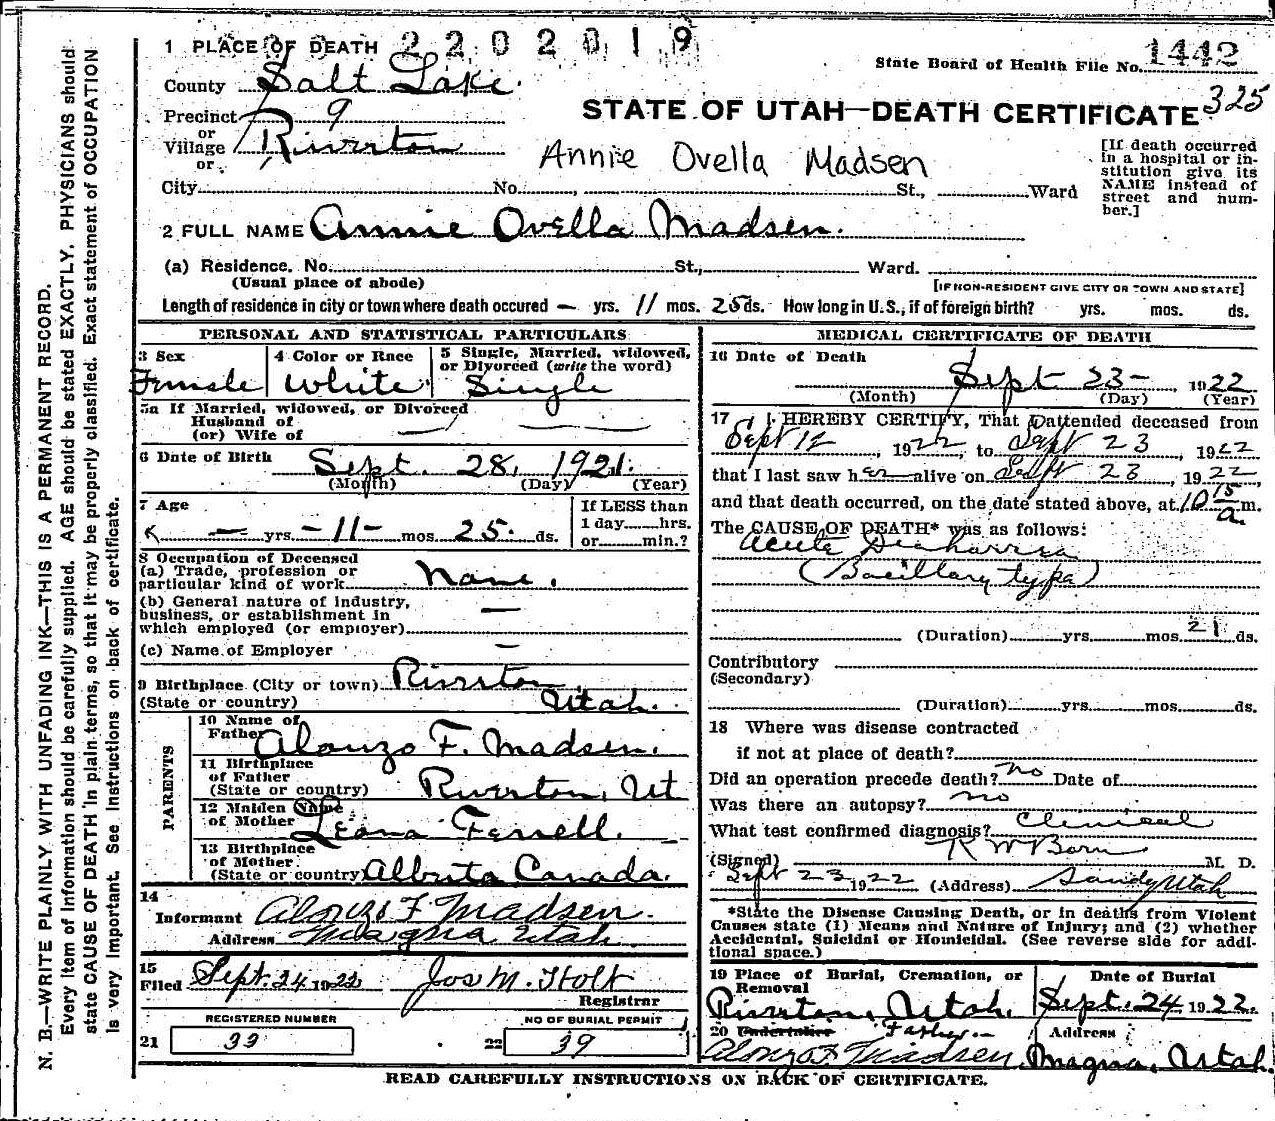 N. B.—WRITE PLAINLY WITH UNFADING INK—THIS IS A PERMANENT RECORD.
Every item of information should be carefully supplied. AGE should be stated EXACTLY. PHYSICIANS should
state CAUSE OF DEATH in plain terms, so that it may be properly classified. Exact statement of OCCUPATION
is very important. See instructions on back of certificate.
1 PLACE OF DEATH 2202019
State Board of Health File No. 1442
County Salt Lake.
325
STATE OF UTAH—DEATH CERTIFICATE
Precinct 9
or
Village Riverton
or
Annie Ovella Madsen
[If death occurred
in a hospital or in-
stitution give its
NAME instead of
street and num-
ber.]
City No. St., Ward
2 FULL NAME Annie Ovella Madsen.
(a) Residence. No. St., Ward.
(Usual place of abode) [IF NON-RESIDENT GIVE CITY OR TOWN AND STATE]
Length of residence in city or town where death occured — yrs. 11 mos. 25 ds. How long in U.S., if of foreign birth? yrs. mos. ds.
PERSONAL AND STATISTICAL PARTICULARS
3 Sex 4 Color or Race 5 Single, Married, widowed,
or Divorced (write the word)
Female White Single
5a If Married, widowed, or Divorced
Husband of
(or) Wife of
6 Date of Birth Sept. 28, 1921.
(Month) (Day) (Year)
7 Age If LESS than
— yrs. -11- mos. 25. ds. 1 day hrs.
or min.?
8 Occupation of Deceased
(a) Trade, profession or
particular kind of work None.
(b) General nature of industry,
business, or establishment in
which employed (or employer) —
(c) Name of Employer —
9 Birthplace (City or town) Riverton
(State or country) Utah.
PARENTS
10 Name of
Father Alonzo F. Madsen.
11 Birthplace
of Father
(State or country) Riverton, Ut
12 Maiden Name
of Mother Leona Ferrell.
13 Birthplace
of Mother
(State or country) Alberta Canada.
14
Informant Alonzo F Madsen.
Address Magna Utah.
15
Filed Sept. 24 1922 Jos M. Holt
Registrar
REGISTERED NUMBER NO OF BURIAL PERMIT
21 33 22 39
MEDICAL CERTIFICATE OF DEATH
16 Date of Death Sept 23- 1922
(Month) (Day) (Year)
17 I HEREBY CERTIFY, That I attended deceased from
Sept 12, 1922, to Sept 23, 1922
that I last saw her alive on Sept 23, 1922,
and that death occurred, on the date stated above, at 10 15 a. m.
The CAUSE OF DEATH* was as follows:
Acute Diarrhea
(Bacillary type)
(Duration) yrs. mos. 21 ds.
Contributory
(Secondary)
(Duration) yrs. mos. ds.
18 Where was disease contracted
if not at place of death?
Did an operation precede death? no Date of
Was there an autopsy? no
What test confirmed diagnosis? Clinical
(Signed) R W Born M. D.
Sept 23 1922 (Address) Sandy Utah
*State the Disease Causing Death, or in deaths from Violent
Causes state (1) Means and Nature of Injury; and (2) whether
Accidental, Suicidal or Homicidal. (See reverse side for addi-
tional space.)
19 Place of Burial, Cremation, or
Removal Date of Burial
Riverton, Utah. Sept. 24 1922.
20 Undertaker Father Address
Alonzo F Madsen, Magna, Utah.
READ CAREFULLY INSTRUCTIONS ON BACK OF CERTIFICATE.